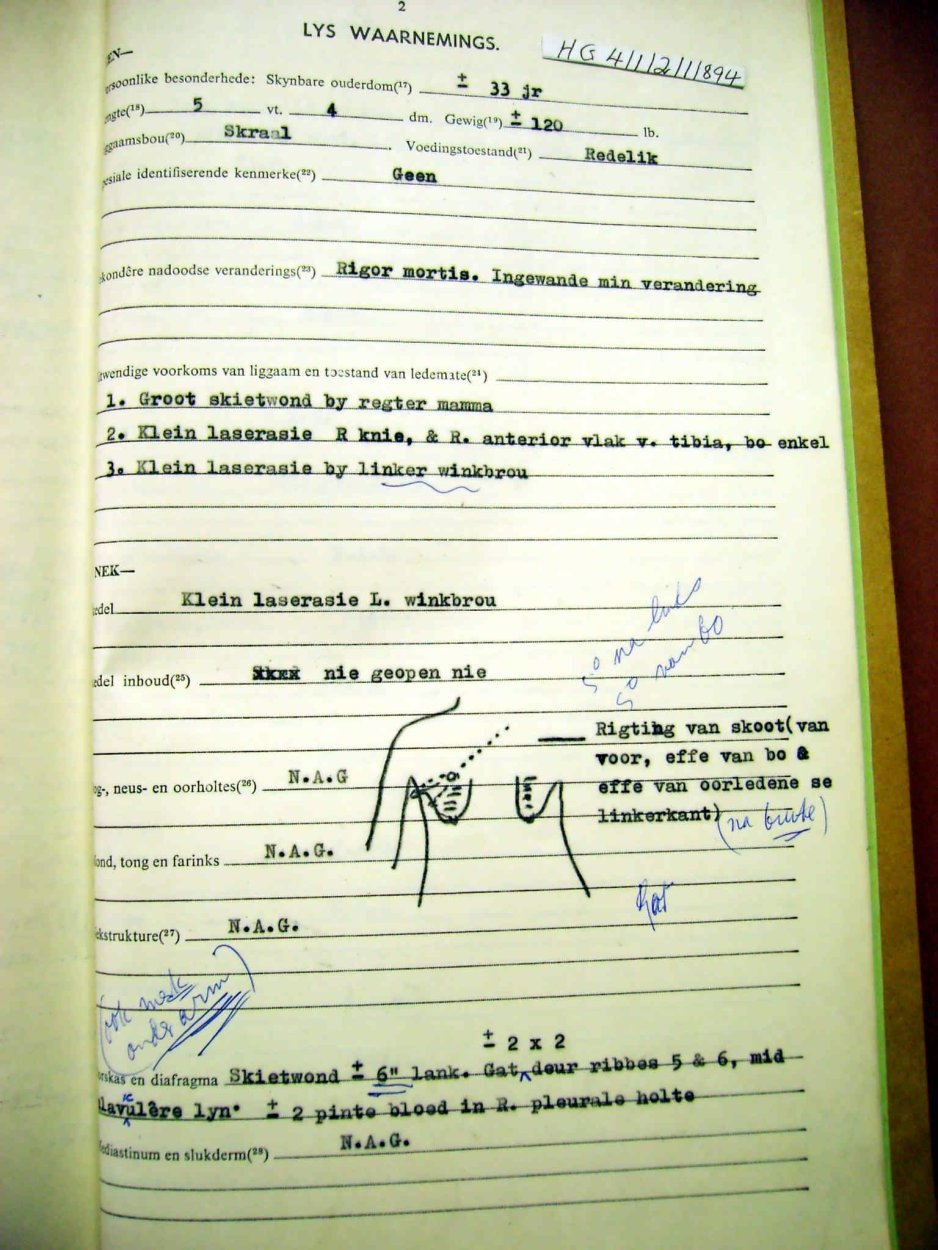 2
LYS WAARNEMINGS.
HG 4/1/2/1/894
EN—
rsoonlike besonderhede: Skynbare ouderdom(17) ± 33 jr
ngte(18) 5 vt. 4 dm. Gewig(19) ± 120 lb.
ggaamsbou(20) Skraal. Voedingstoestand(21) Redelik
esiale identifiserende kenmerke(22) Geen
kondêre nadoodse veranderings(23) Rigor mortis. Ingewande min verandering
twendige voorkoms van liggaam en toestand van ledemate(24)
1. Groot skietwond by regter mamma
2. Klein laserasie R knie, & R. anterior vlak v. tibia, bo enkel
3. Klein laserasie by linker winkbrou
NEK—
edel Klein laserasie L. winkbrou
5° na links
5° van bo
edel inhoud(25) nie geopen nie
Rigting van skoot(van
voor, effe van bo &
effe van oorledene se
linkerkant)
og-, neus- en oorholtes(26) N.A.G
ond, tong en farinks N.A.G.
kstrukture(27) N.A.G.
(ook merk
onder arm)
± 2 x 2
orskas en diafragma Skietwond ± 6" lank. Gat deur ribbes 5 & 6, mid
lavikulêre lyn. ± 2 pinte bloed in R. pleurale holte
ediastinum en slukderm(28) N.A.G.